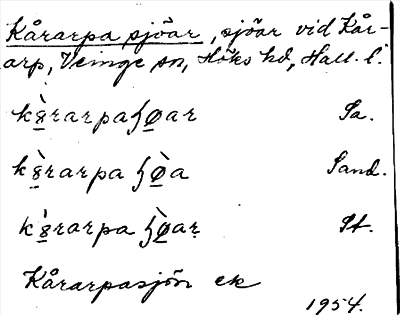 Kårarpa sjöar, sjöar vid Kår-
arp, Veinge sn, Höks hd, Hall. l.
k8̀rarpaʃø̀ar Sa.
k8̀rarpa ʃø̀a Sand.
k8̀rarpa ʃø̀ar St.
Kårarpasjön ek
1954.